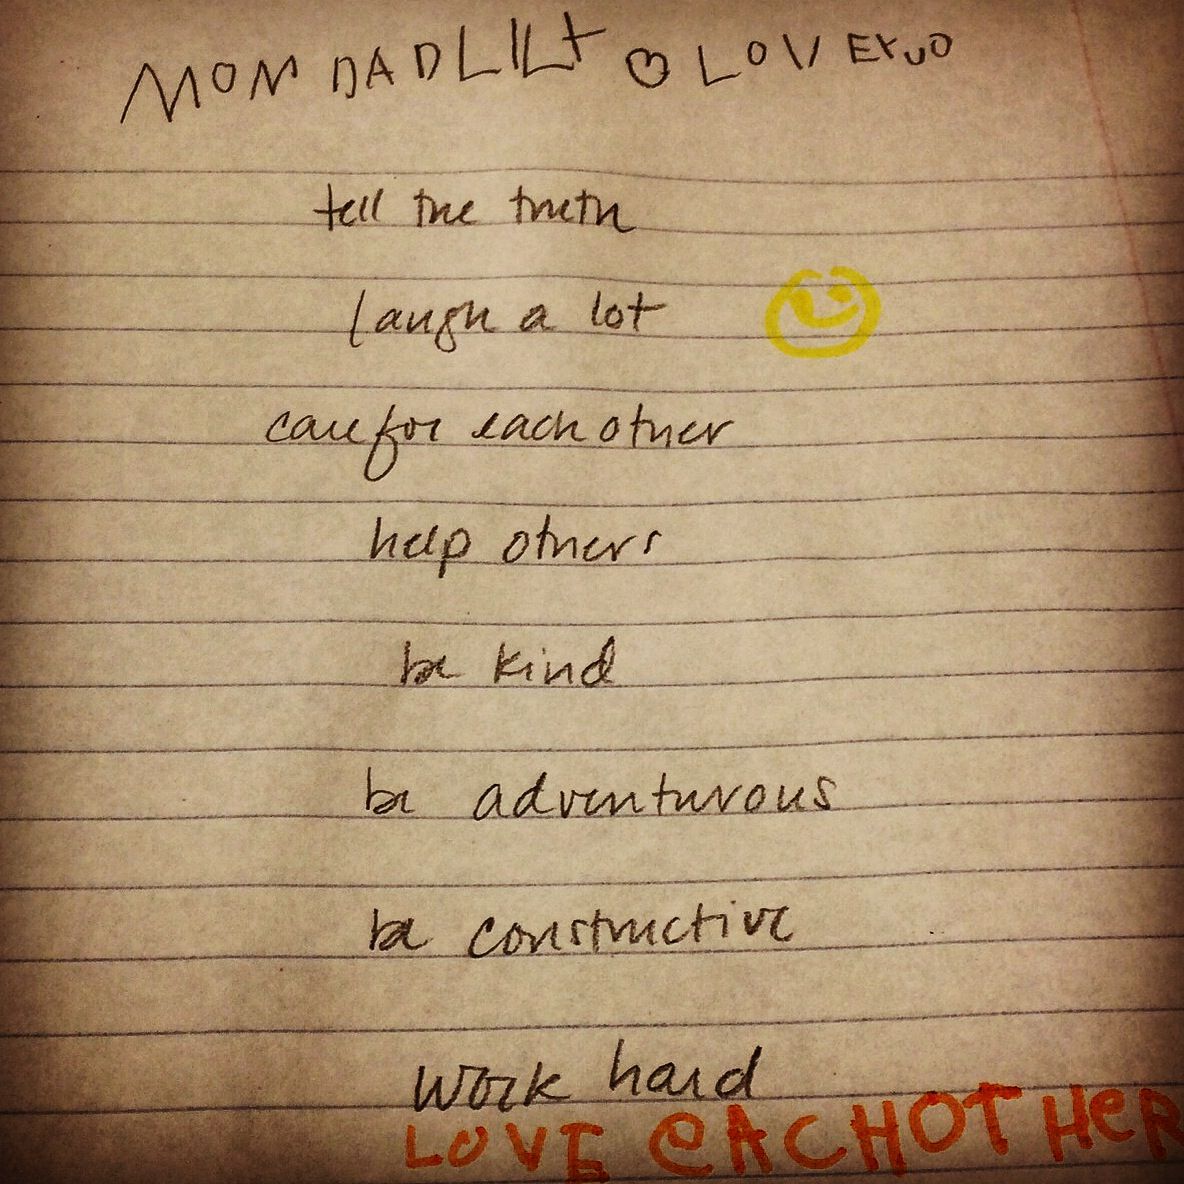 MOM DAD LILY ♡ LOVE YUO
tell the truth
laugh a lot
care for each other
help others
be kind
be adventurous
be constructive
work hard
LOVE eACHOTHeR